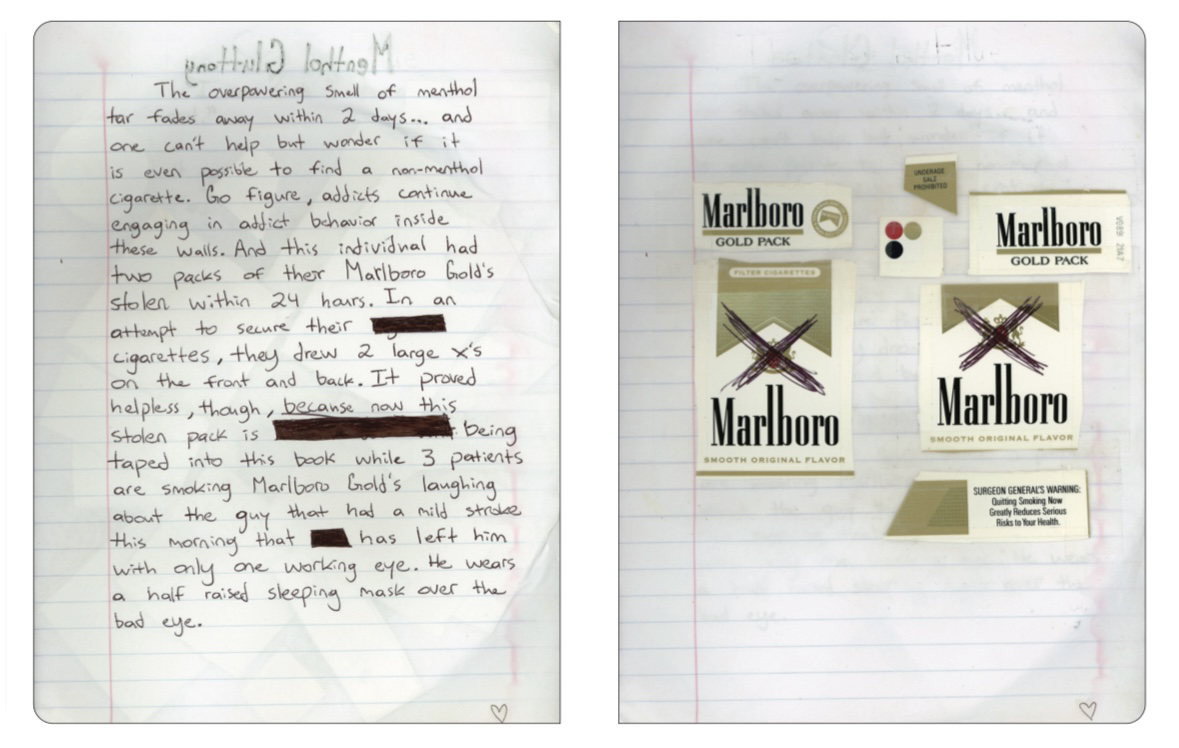 Menthol Gluttony
The overpowering smell of menthol
tar fades away within 2 days... and
one can't help but wonder if it
is even possible to find a non-menthol
cigarette. Go figure, addicts continue
engaging in addict behavior inside
these walls. And this individual had
two packs of their Marlboro Gold's
stolen within 24 hours. In an
attempt to secure their
cigarettes, they drew 2 large x's
on the front and back. It proved
helpless, though, because now this
stolen pack is being
taped into this book while 3 patients
are smoking Marlboro Gold's laughing
about the guy that had a mild stroke
this morning that has left him
with only one working eye. He wears
a half raised sleeping mask over the
bad eye.
UNDERAGE
SALE
PROHIBITED
Marlboro
GOLD PACK
Marlboro
GOLD PACK
FILTER CIGARETTES
Marlboro
SMOOTH ORIGINAL FLAVOR
Marlboro
SMOOTH ORIGINAL FLAVOR
SURGEON GENERAL'S WARNING:
Quitting Smoking Now
Greatly Reduces Serious
Risks to Your Health.